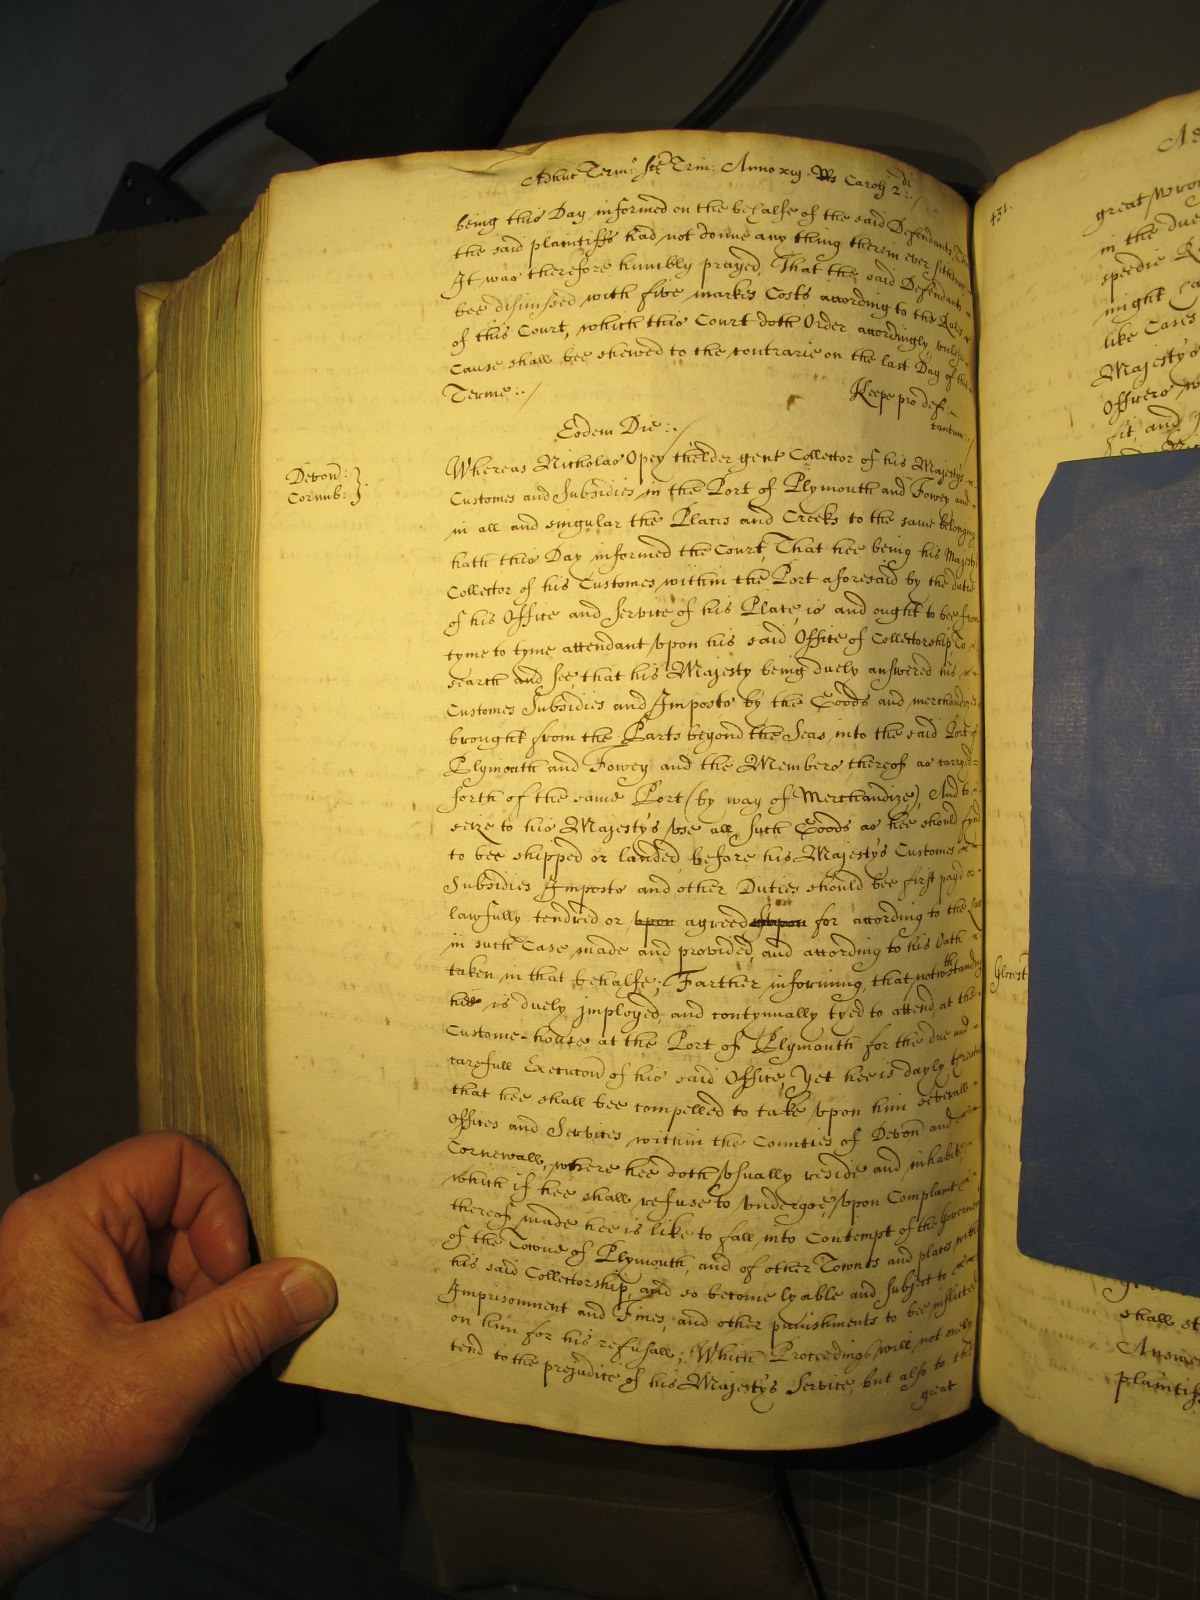 Adhuc Term: Sce Trin: Anno xiij Rs Caroli 2di:
being this Day informed on the behalfe of the said Defendants, That
the said plaintiffs had not donne any thing therein ever sithence
It was therefore humbly prayed, That the said Defendants
bee dismissed with five markes Costs according to the Rules
of this Court, which this Court doth Order accordingly, unlesse
Cause shall bee shewed to the contrarie on the last Day of this
Terme:
Keepe pro def:
tantum:
Eodem Die:
Devon:
Cornub:
Whereas Nicholas Opey thelder gent Collector of his Majestys
Customes and Subsidies in the Port of Plymouth and Fowey and
in all and singular the Places and Creeks to the same belonging
hath this Day informed the Court, That hee being his Majestys
Collector of his Customes, within the Port aforesaid by the dutie
of his Office and Service of his Place, is and ought to bee from
tyme to tyme attendant upon his said Office of Collectorship, To
search and see that his Majesty being duely answered his
Customes Subsidies and Imposts by the Goods and merchandizes
brought from the Parts beyond the Seas, into the said Port of
Plymouth and Fowey and the Members thereof as carryed
forth of the same Port (by way of Merchandize), And to
seize to his Majesty's use all such Goods as hee should fynd
to bee shipped or landed before his Majesty's Customes
Subsidies Imposts and other Duties should bee first payd or
lawfully tendred or upon agreed for according to the Law
in such Case made and provided, and according to his Oath
taken in that behalfe; Farther informing, that notwthstanding
hee is duely imployed, and contynually tyed to attend, at the
Custome-house at the Port of Plymouth for the due and
carefull Execucon of his said Office, Yet hee is dayly threatned
that hee shall bee compelled to take upon him severall
Offices and Services within the Counties of Devon and
Cornewall, where hee doth usually reside and inhabite,
which if hee shall refuse to undergoe, upon Complaint
thereof made hee is like to fall into Contempt of the Governors
of the Towne of Plymouth, and of other Townes and places within
his said Collectorship, and so become lyable and subject to
Imprisonment and Fines, and other punishments to bee inflicted
on him for his refusall; Which Proceedings will not onely
tend to the prejudice of his Majesty's Service, but also to the
great
431.
great wron
in the due
speedie R
might Ca
like Cases
Majesty's
Officers w
fit, and
Glouc
shall
Answe
plaintiff